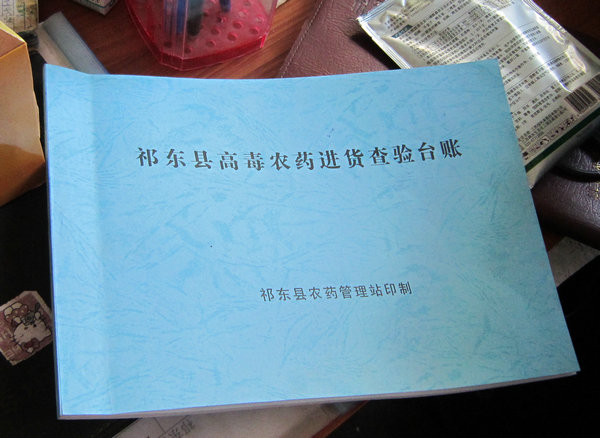 祁东县高毒农药进货查验台账
祁东县农药管理站印制